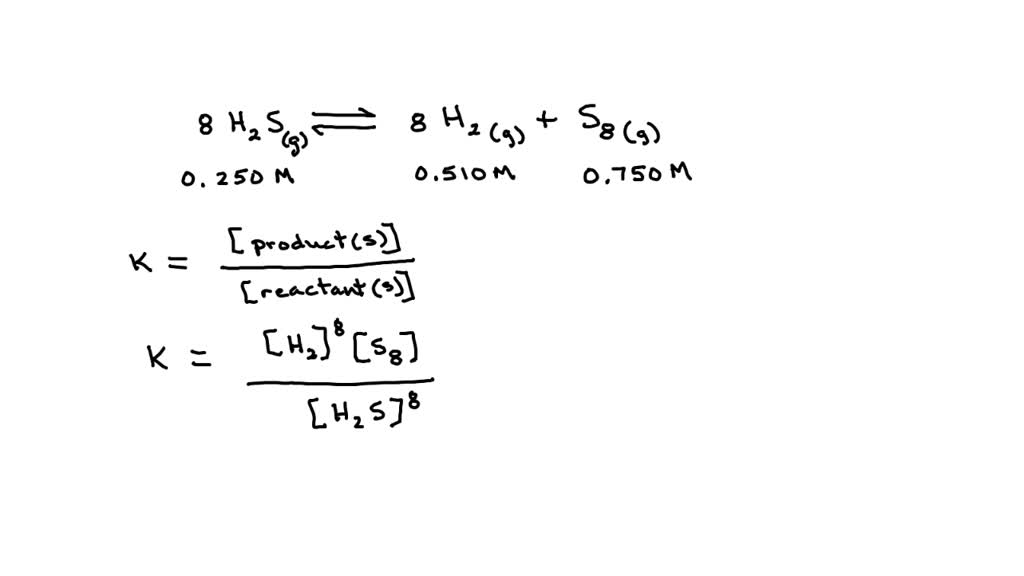 8 H₂S(g) ⇌ 8 H₂(g) + S₈(g)
0.250 M 0.510 M 0.750 M
K = [product(s)] / [reactant(s)]
K = [H₂]⁸ [S₈] / [H₂S]⁸